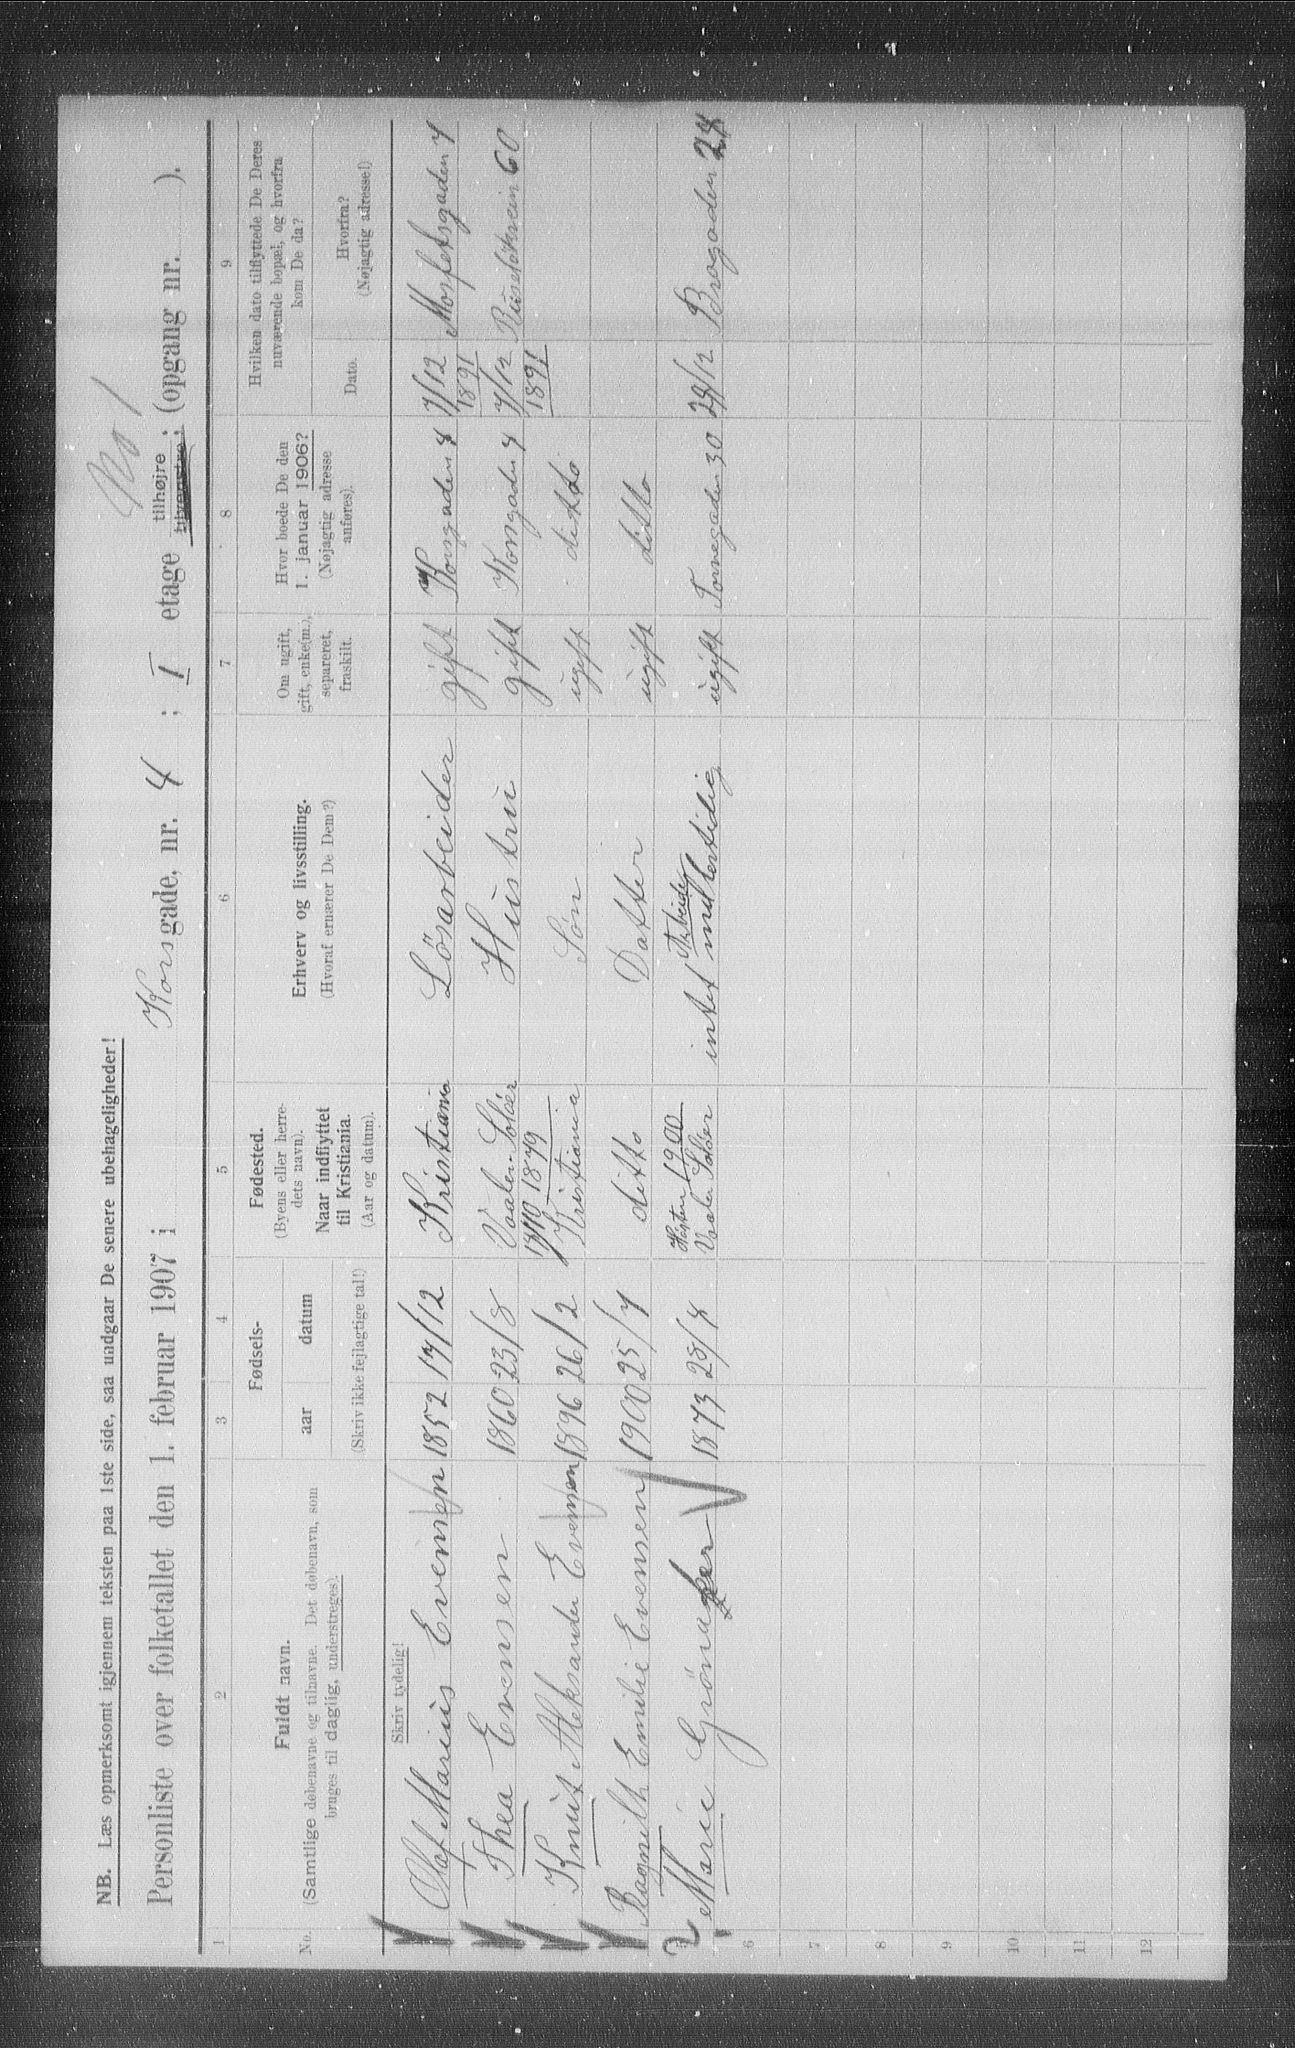 NB. Læs opmerksomt igjennem teksten paa 1ste side, saa undgaar De senere ubehageligheder!
No 1
Personliste over folketallet den 1. februar 1907 i Korsgade, nr. 4 ; I etage tilhøjre tilvenstre; (opgang nr. ).
1 2 3 4 5 6 7 8 9
No.
Fuldt navn.
(Samtlige døbenavne og tilnavne. Det døbenavn, som
bruges til daglig, understreges).
Fødsels-
aar datum
(Skriv ikke fejlagtige tal!)
Fødested.
(Byens eller herre-
dets navn).
Naar indflyttet
til Kristiania.
(Aar og datum).
Erhverv og livsstilling.
(Hvoraf ernærer De Dem?)
Om ugift,
gift, enke(m.),
separeret,
fraskilt.
Hvor boede De den
1. januar 1906?
(Nøjagtig adresse
anføres).
Hvilken dato tilflyttede De Deres
nuværende bopæl, og hvorfra
kom De da?
Dato.
Hvorfra?
(Nøjagtig adresse!)
Skriv tydelig!
Olaf Marius Evensen 1852 17/12 Kristiania Lösarbeider gift Korsgaden 4 7/12 1891 Mosfetsgaden 7
Thea Evensen 1860 23/8 Vaaler Solöer 17/10 1879 Hustru gift Korsgaden 4 7/12 1891 Ruselökvein 60
Knut Aleksander Evensen 1896 26/2 Kristiania Sön ugift ditto
Ragnilh Emilie Evensen 1900 25/7 ditto Datter ugift ditto
5 Marie Grönaker 1873 25/8 Hösten 1900 Vaaler Solöer intet Arbeide midlertidig ugift Tornegaden 30 29/12 Brogaden 28
6
7
8
9
10
11
12